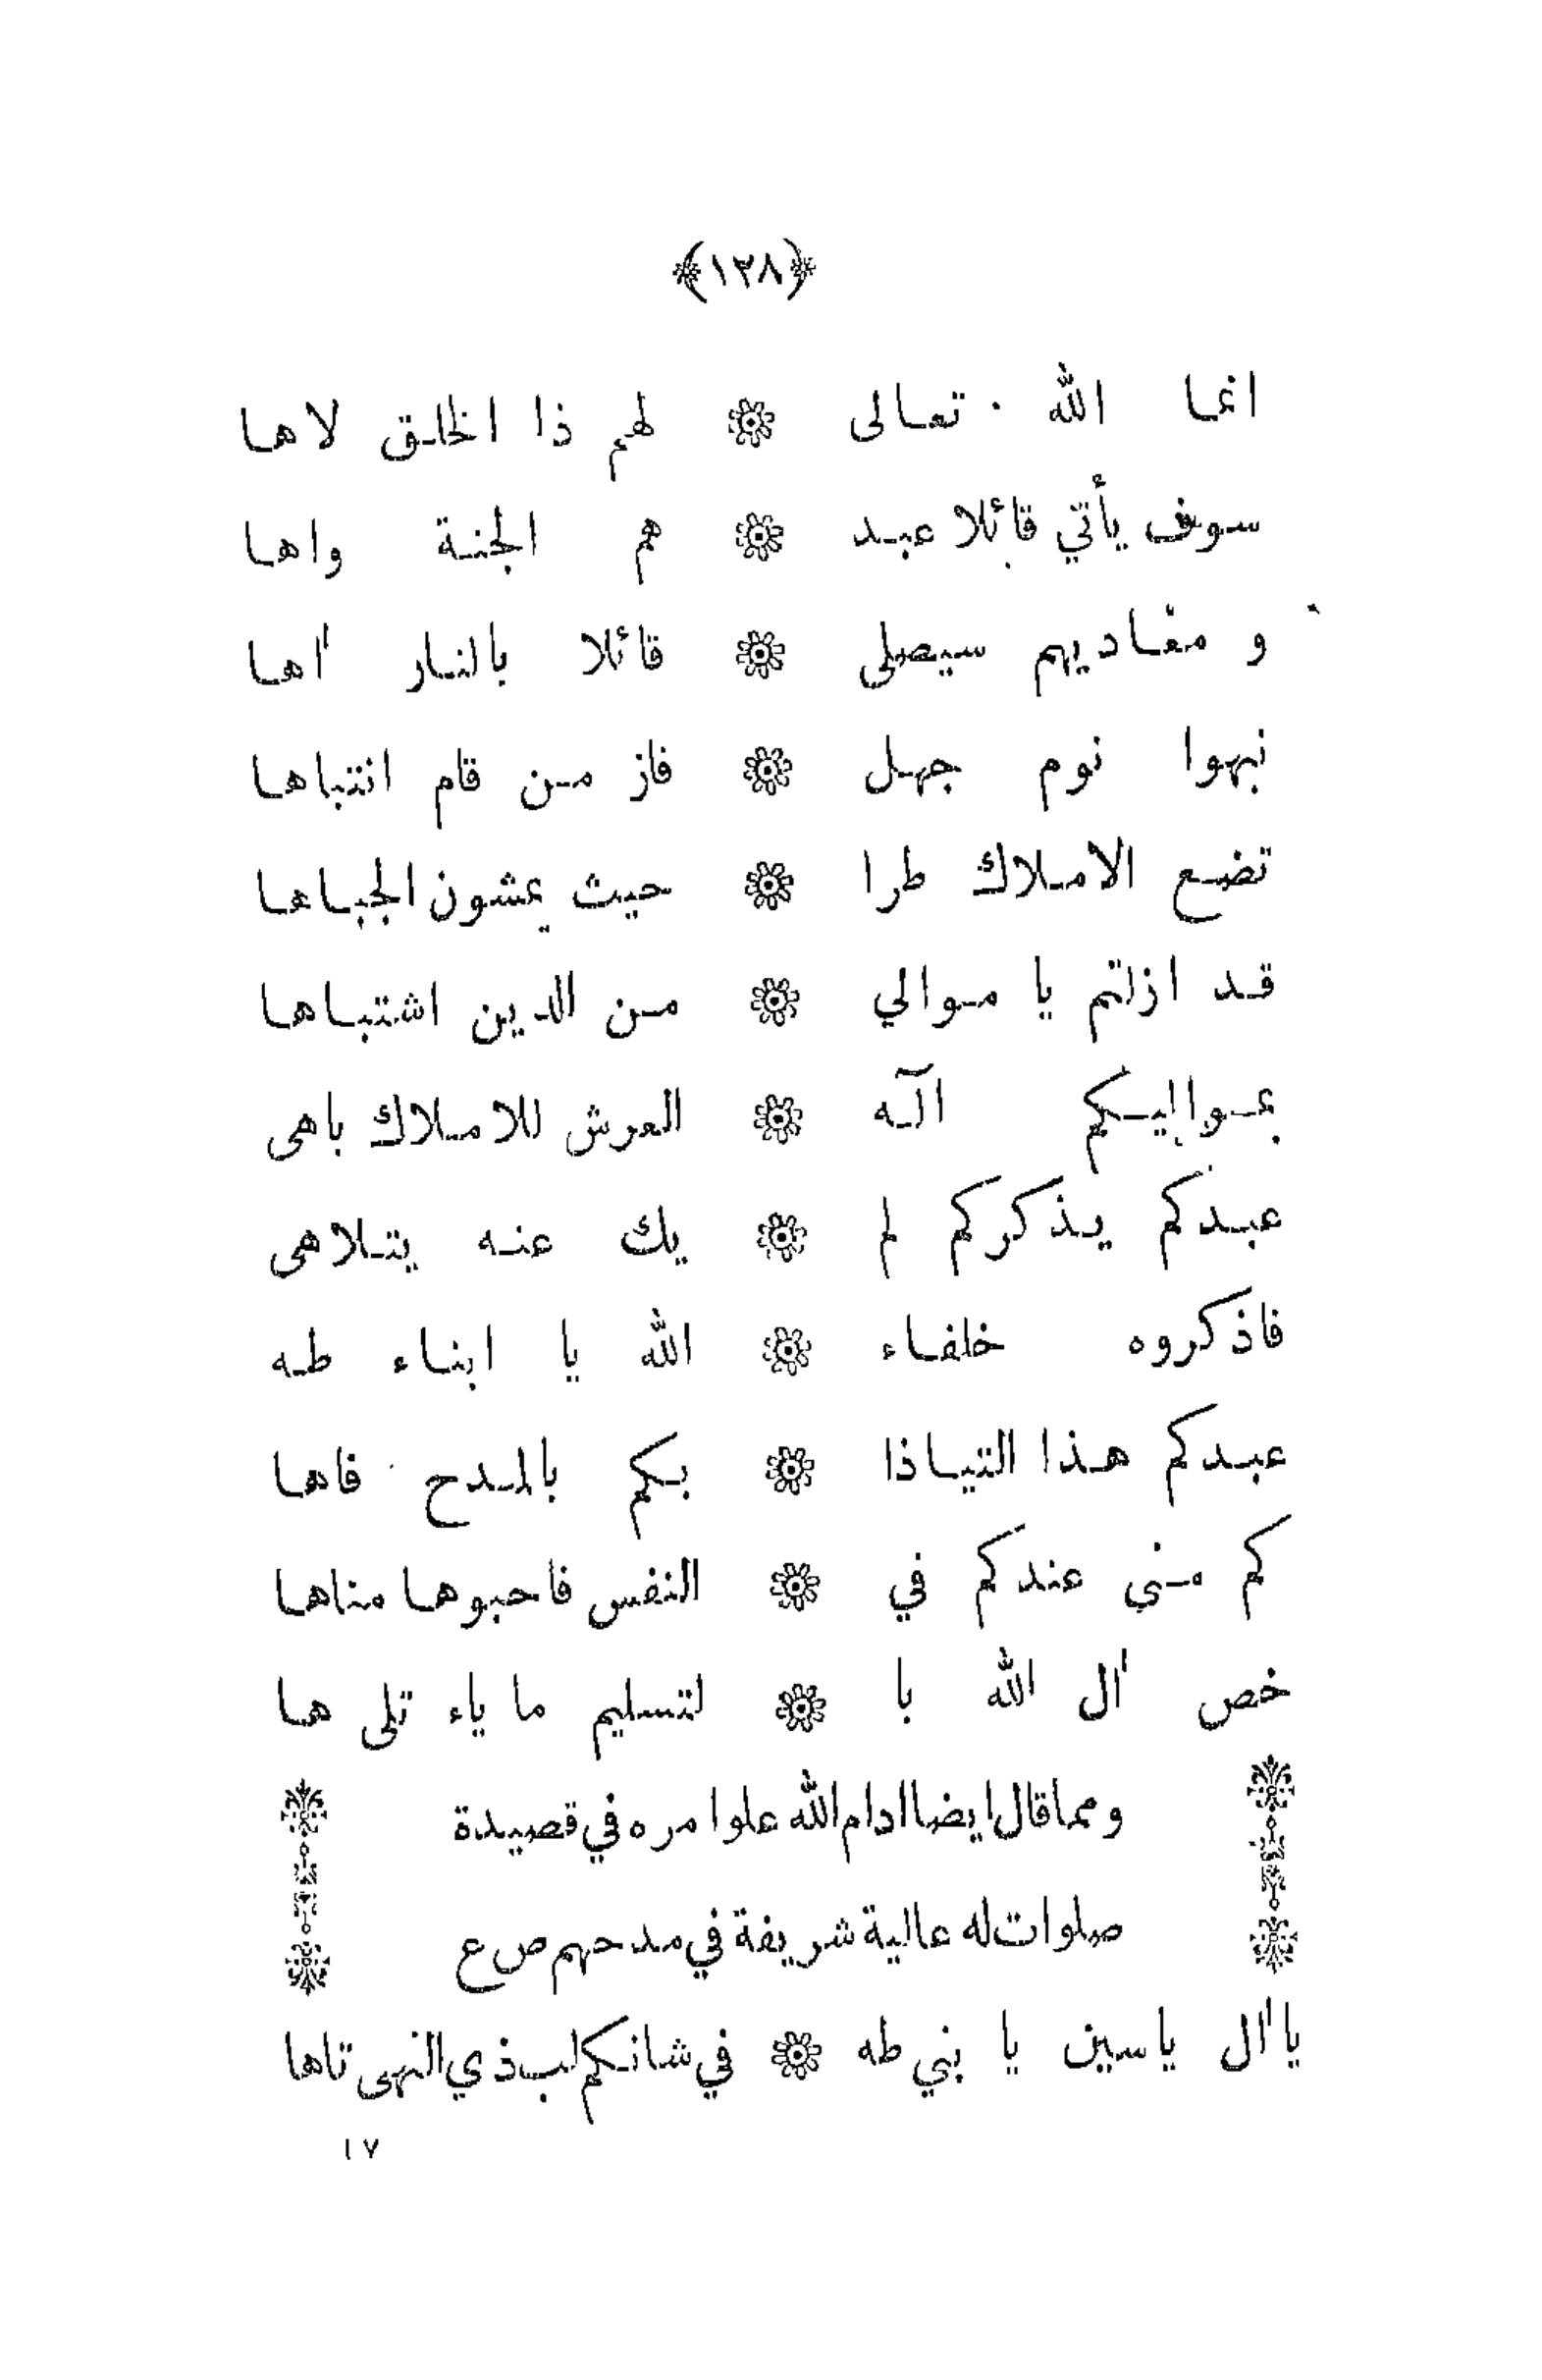 ﴿١٢٨﴾
انما الله تعالى ❁ لهم ذا الخلق لاها
سوف يأتي قائلا عبد ❁ هم الجنة واها
و معاديهم سيصلى ❁ قائلا بالنار اٰها
نبهوا نوم جهل ❁ فاز من قام انتباها
تضع الاملاك طرا ❁ حيث يمشون الجباها
قد ازلتم يا موالي ❁ من الدين اشتباها
بمواليكم آله ❁ العرش للاملاك باهى
عبدكم يذكركم لم ❁ يك عنه يتلاهى
فاذكروه خلفاء ❁ الله يا ابناء طه
عبدكم هذا التياذا ❁ بكم بالمدح فاها
كم منى عندكم في ❁ النفس فاحبوها مناها
خص اٰل الله با ❁ لتسليم ما ياء تلى ها
ومما قال ايضا ادام الله علوا مره في قصيدة
صلوات له عالية شريفة في مدحهم ص ع
يا اٰل ياسين يا بني طه ❁ في شانكم لب ذي النهى تاها
١٧